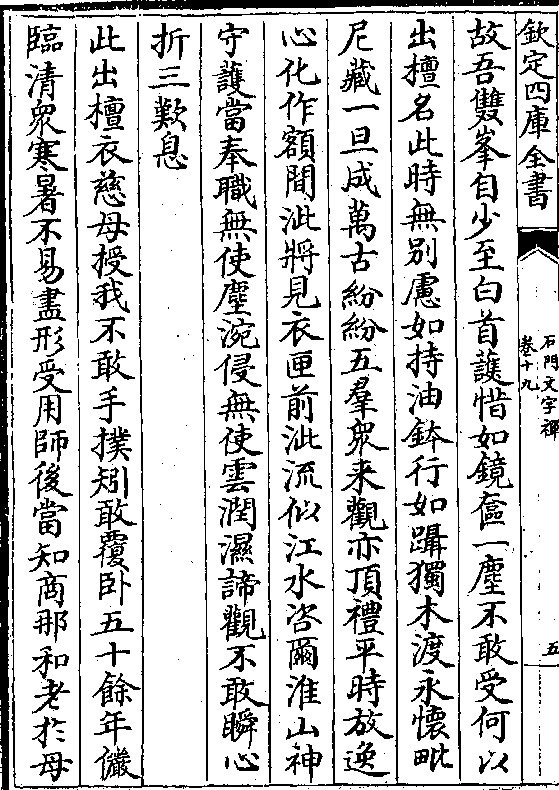 欽定四庫全書
石門文字禪
卷十九
五
故吾雙峯自少至白首護惜如鏡奩一塵不敢受何以
出檀名此時無別慮如持油鉢行如躡獨木渡永懷毗
尼藏一旦成萬古紛紛五羣衆来觀亦頂禮平時放逸
心化作額間泚將見衣匣前泚流似江水咨爾淮山神
守護當奉職無使塵涴侵無使雲潤濕諦觀不敢瞬心
折三歎息
此出檀衣慈母授我不敢手撲矧敢覆卧五十餘年儼
臨清衆寒暑不易盡形受用師後當知商那和老於母